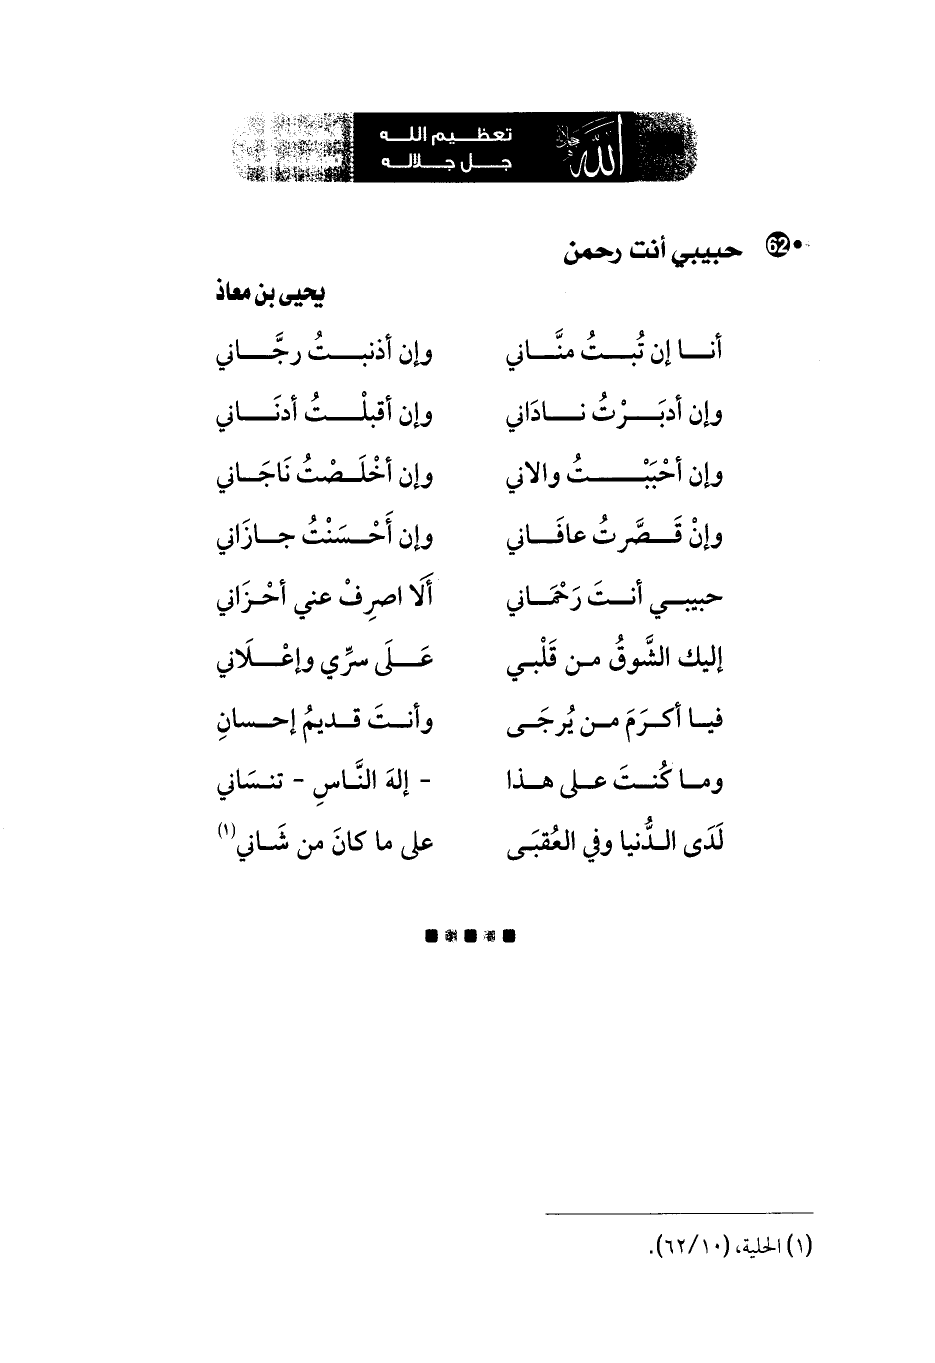 تعظيم الله
جل جلاله
الله
62 حبيبي أنت رحمن
يحيى بن معاذ
أنا إن تُبتُ منَّاني وإن أذنبتُ رجَّاني
وإن أدبَرْتُ نادَاني وإن أقبلْتُ أدنَاني
وإن أحْبَبْتُ والاني وإن أخْلَصْتُ نَاجَاني
وإنْ قَصَّرتُ عافَاني وإن أَحْسَنْتُ جازَاني
حبيبي أنتَ رَحْمَاني أَلَا اصرِفْ عني أحْزَاني
إليك الشَّوقُ من قَلْبي عَلَى سرِّي وإعْلَاني
فيا أكرَمَ من يُرجَى وأنتَ قديمُ إحسانِ
وما كُنتَ على هذا - إلهَ النَّاسِ - تنسَاني
لَدَى الدُّنيا وفي العُقبَى على ما كانَ من شَاني(١)
(١) الحلية، (٦٢/١٠).